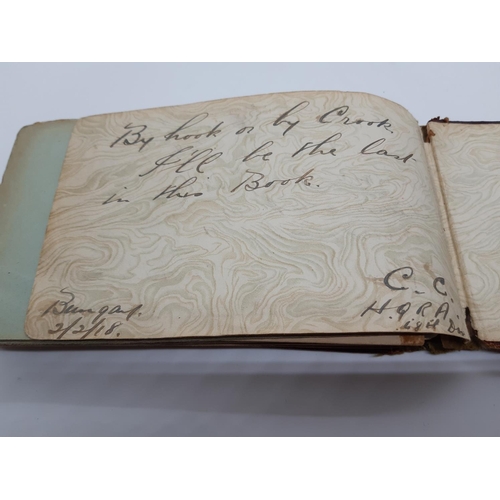 By hook or by Crook.
I'll be the last
in this Book.
C. C.
H.Q R.A.
Bungay.
2/2/18.